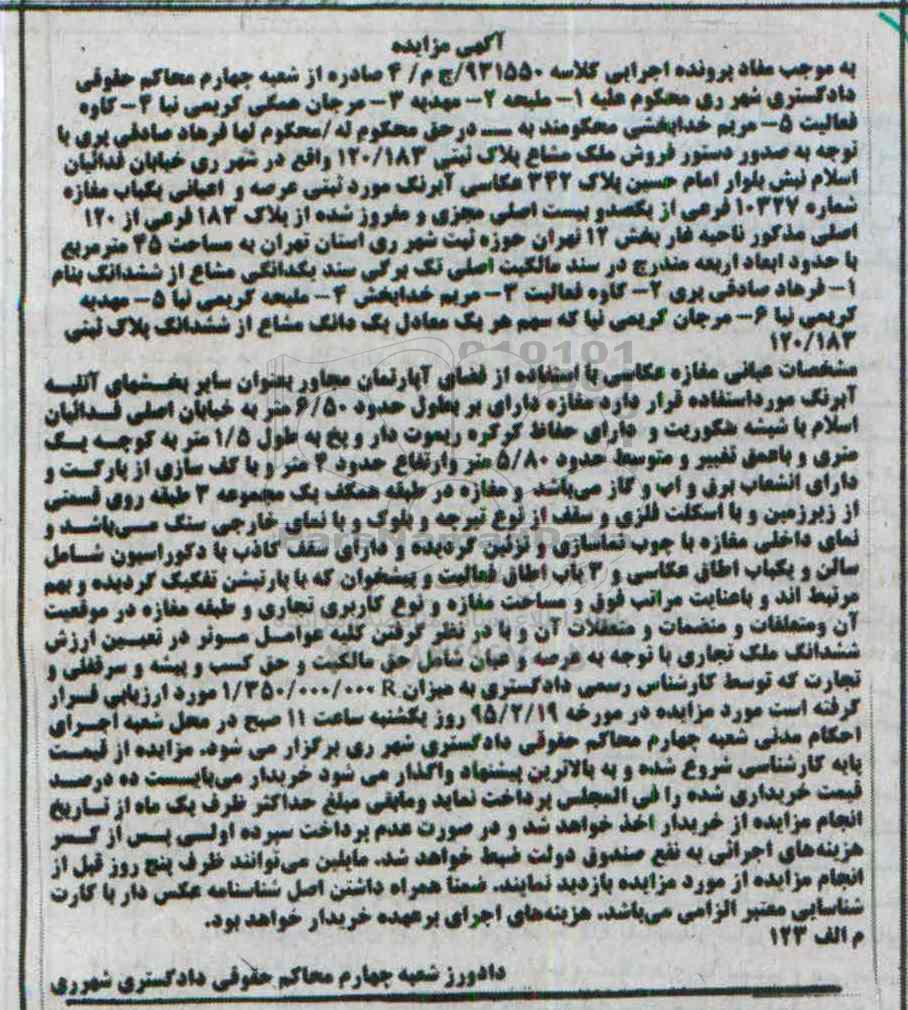 آگهی مزایده
به موجب مفاد پرونده اجرایی کلاسه ۹۳۱۵۵۰/ج م/ ۴ صادره از شعبه چهارم محاکم حقوقی
دادگستری شهر ری محکوم علیه ۱- ملیحه ۲- مهدیه ۳- مرجان همگی کریمی نیا ۴- کاوه
فعالیت ۵- مریم خدابخشی محکومند به ــــ در حق محکوم له /محکوم لها فرهاد صادقی پری با
توجه به صدور دستور فروش ملک مشاع پلاک ثبتی ۱۲۰/۱۸۳ واقع در شهر ری خیابان فدائیان
اسلام نبش بلوار امام حسین پلاک ۳۴۲ عکاسی آبرنگ مورد ثبتی عرصه و اعیانی یکباب مغازه
شماره ۱۰۳۲۷ فرعی از یکصدو بیست اصلی مجزی و مفروز شده از پلاک ۱۸۳ فرعی از ۱۲۰
اصلی مذکور ناحیه غار بخش ۱۲ تهران حوزه ثبت شهر ری استان تهران به مساحت ۴۵ مترمربع
با حدود ابعاد اربعه مندرج در سند مالکیت اصلی تک برگی سند یکدانگی مشاع از ششدانگ بنام
۱- فرهاد صادقی پری ۲- کاوه فعالیت ۳- مریم خدابخش ۴- ملیحه کریمی نیا ۵- مهدیه
کریمی نیا ۶- مرجان کریمی نیا که سهم هر یک معادل یک دانگ مشاع از ششدانگ پلاک ثبتی
۱۲۰/۱۸۳
مشخصات عیانی مغازه عکاسی با استفاده از فضای آپارتمان مجاور بعنوان سایر بخشهای آتلیه
آبرنگ مورداستفاده قرار دارد مغازه دارای بر بطول حدود ۶/۵۰ متر به خیابان اصلی فدائیان
اسلام با شیشه سکوریت و دارای حفاظ کرکره ریموت دار و پخ به طول ۱/۵ متر به کوچه یک
متری و باعمق تغییر و متوسط حدود ۵/۸۰ متر وارتفاع حدود ۴ متر و با کف سازی از پارکت و
دارای انشعاب برق و اب و گاز می‌باشد و مغازه در طبقه همکف یک مجموعه ۳ طبقه روی قسمتی
از زیرزمین و با اسکلت فلزی و سقف از نوع تیرچه و بلوک و با نمای خارجی سنگ می‌باشد و
نمای داخلی مغازه با چوب نماسازی و تزئین گردیده و دارای سقف کاذب با دکوراسیون شامل
سالن و یکباب اطاق عکاسی و ۳ باب اطاق فعالیت و پیشخوان که با پارتیشن تفکیک گردیده و بهم
مرتبط اند و باعنایت مراتب فوق و مساحت مغازه و نوع کاربری تجاری و طبقه مغازه در موقعیت
آن ومتعلقات و منضمات و متعلقات آن و با در نظر گرفتن کلیه عوامل موثر در تعیین ارزش
ششدانگ ملک تجاری با توجه به عرصه و عیان شامل حق مالکیت و حق کسب و پیشه و سرقفلی و
تجارت که توسط کارشناس رسمی دادگستری به میزان R ۱/۳۵۰/۰۰۰/۰۰۰ مورد ارزیابی قرار
گرفته است مورد مزایده در مورخه ۹۵/۲/۱۹ روز یکشنبه ساعت ۱۱ صبح در محل شعبه اجرای
احکام مدنی شعبه چهارم محاکم حقوقی دادگستری شهر ری برگزار می شود. مزایده از قیمت
پایه کارشناسی شروع شده و به بالاترین پیشنهاد واگذار می شود خریدار می‌بایست ده درصد
قیمت خریداری شده را فی المجلس پرداخت نماید ومابقی مبلغ حداکثر ظرف یک ماه از تاریخ
انجام مزایده از خریدار اخذ خواهد شد و در صورت عدم پرداخت سپرده اولی پس از کسر
هزینه‌های اجرائی به نفع صندوق دولت ضبط خواهد شد. مایلین می‌توانند ظرف پنج روز قبل از
انجام مزایده از مورد مزایده بازدید نمایند. ضمنا همراه داشتن اصل شناسنامه عکس دار یا کارت
شناسایی معتبر الزامی می‌باشد. هزینه‌های اجرای برعهده خریدار خواهد بود.
م الف ۱۲۳
دادورز شعبه چهارم محاکم حقوقی دادگستری شهرری